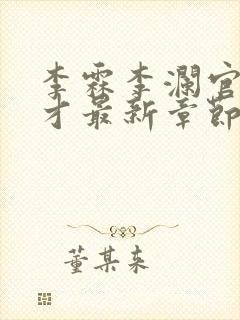 李霖李澜官
才最新章節
董某来